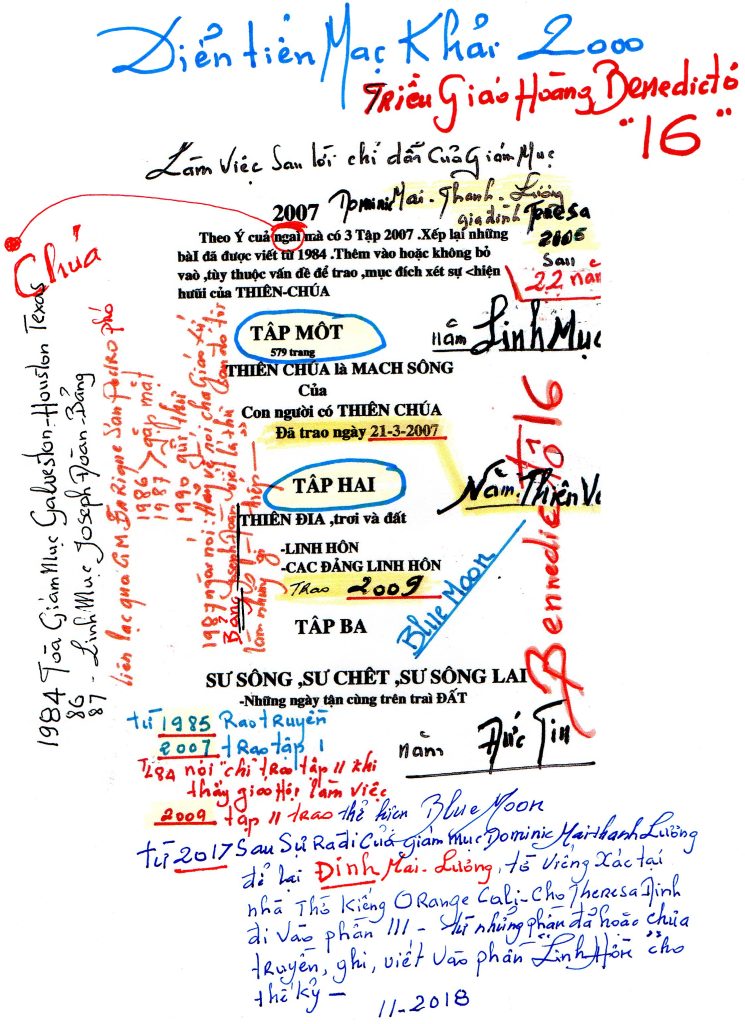 Diển tiến Mạc Khải 2000
Triều Giáo Hoàng Benedictô
"16"
Làm Việc Sau lời chỉ dẩn Của Giám Mục
Dominic Mai-Thanh-Lương
gia đình Teresa
2006
Sau
22 năm
2007
Theo Ý cuả ngaì mà có 3 Tập 2007 .Xếp lại những
bàI đã được viết từ 1984 .Thêm vào hoặc không bỏ
vaò ,tùy thuộc vấn đề để trao ,mục đích xét sự <hiện
hưũi của THIÊN-CHÚA
Chúa
TÂP MÔT
579 trang
năm Linh Mục
THIÊN CHÚA là MACH SÔNG
Của
Con người có THIÊN CHÚA
Đã trao ngày 21-3-2007
TÂP HAI
Năm Thiên Vă
THIÊN ĐIA ,trơi và đất
-LINH HÔN
-CAC ĐẢNG LINH HÔN
Trao 2009
Blue Moon
Bennedictô 16
TÂP BA
SƯ SÔNG ,SƯ CHÊT ,SƯ SÔNG LAI
-Những ngày tận cùng trên traí ĐẤT
năm Đức Tin
1984 Tòa Giám Mục Galveston-Houston Texas
86
87 - Linh Mục Joseph Đoàn-Bảng
liên lạc qua G.M. EnRique San Pedro phó
1986
1987 > gặp mặt
1990 gửi thư
1987 ngài nói: Hãy về nói cha Giáo xứ
Bảng Joseph Đoàn viết lá thư
làm nhưng gì
từ 1985 Rao truyền
2007 trao tập 1
T.84 nói "chỉ trao tập II khi
thấy giáo Hội làm việc
2009 tập II trao thể hiện Blue Moon
từ 2017 Sau Sự Ra đi Của giám mục Dominic Mai thanh Lương
để lại Đinh Mai-Lương, từ Viếng Xác tại
nhà Thờ Kiếng ORange Cali-Cho Theresa Định
đi Vào phần III - từ những phần đã hoặc chưa
truyền, ghi, viết vào phần Linh Hồn cho
thế kỷ -
11-2018